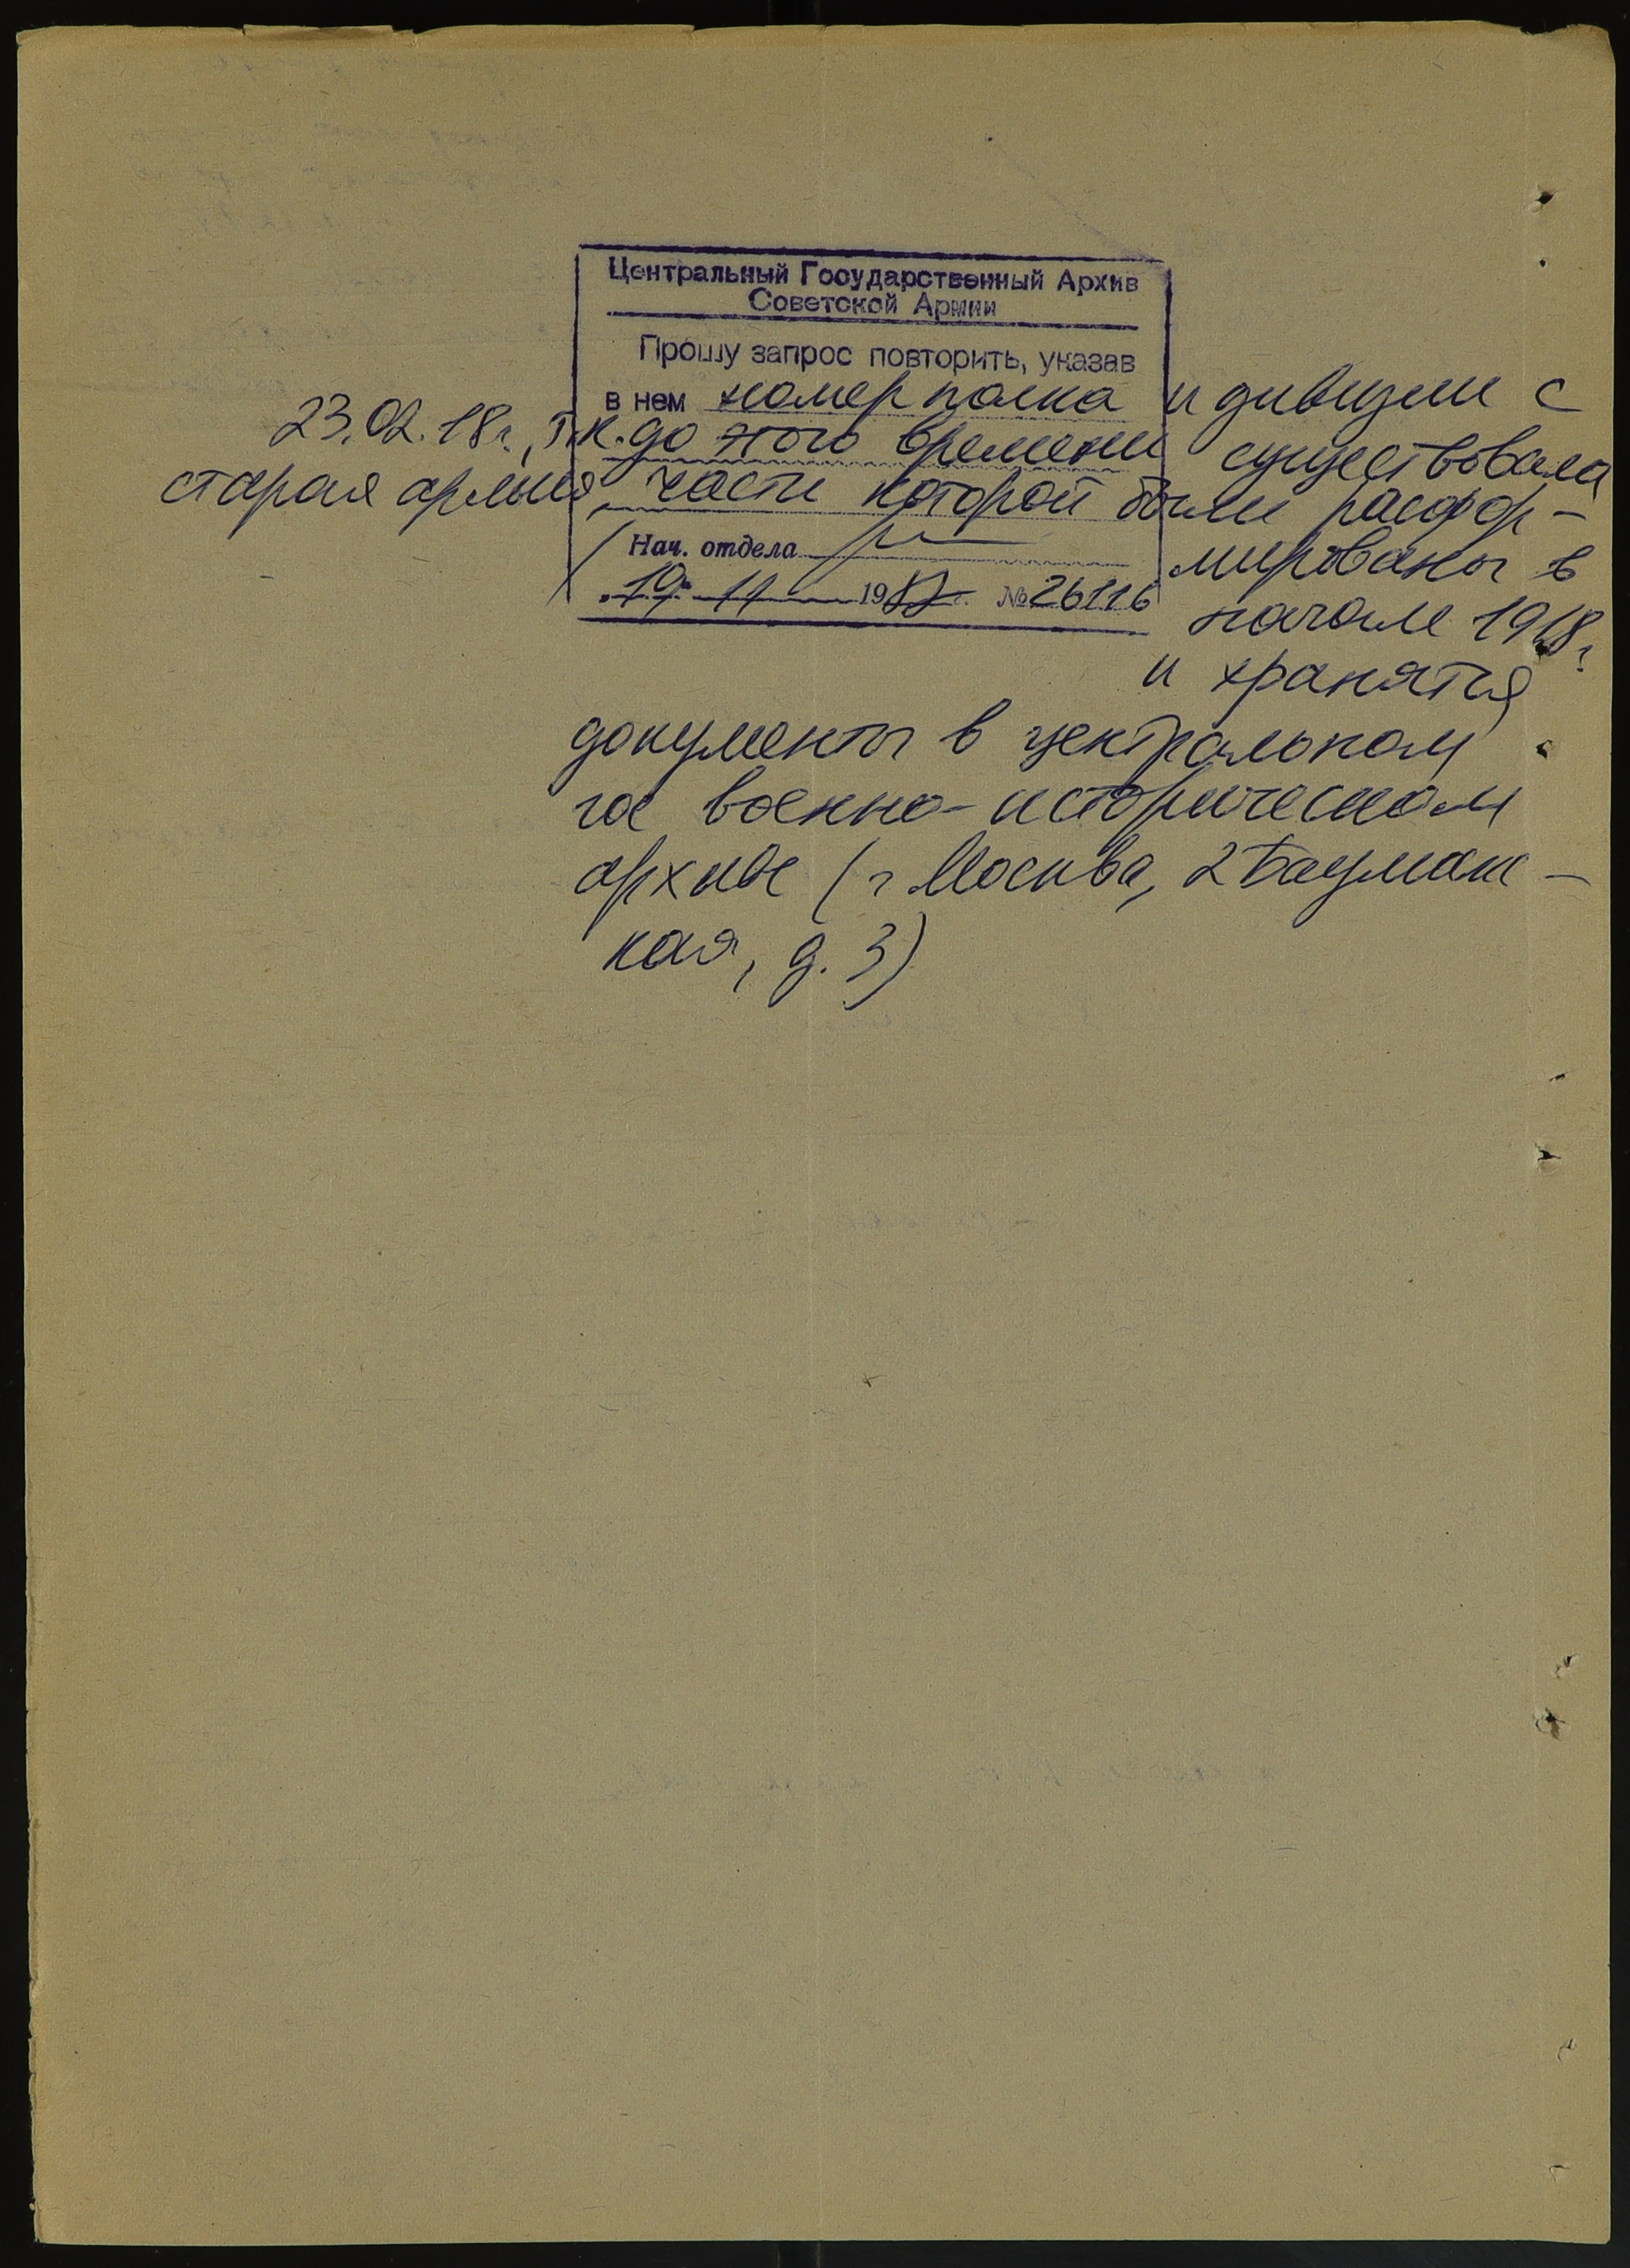 Центральный Государственный Архив
Советской Армии
Прошу запрос повторить, указав
в нем номер полка и дивизии с
23.02.18г., т.к. до этого времени существовала
старая армия, части которой были расфор-
Нач. отдела
мированы в
19 11 19 г. № 26116
начале 1918г.
и хранятся
документы в центральном
гос военно-историческом
архиве (г Москва, 2 Бауманс-
кая, д. 3)